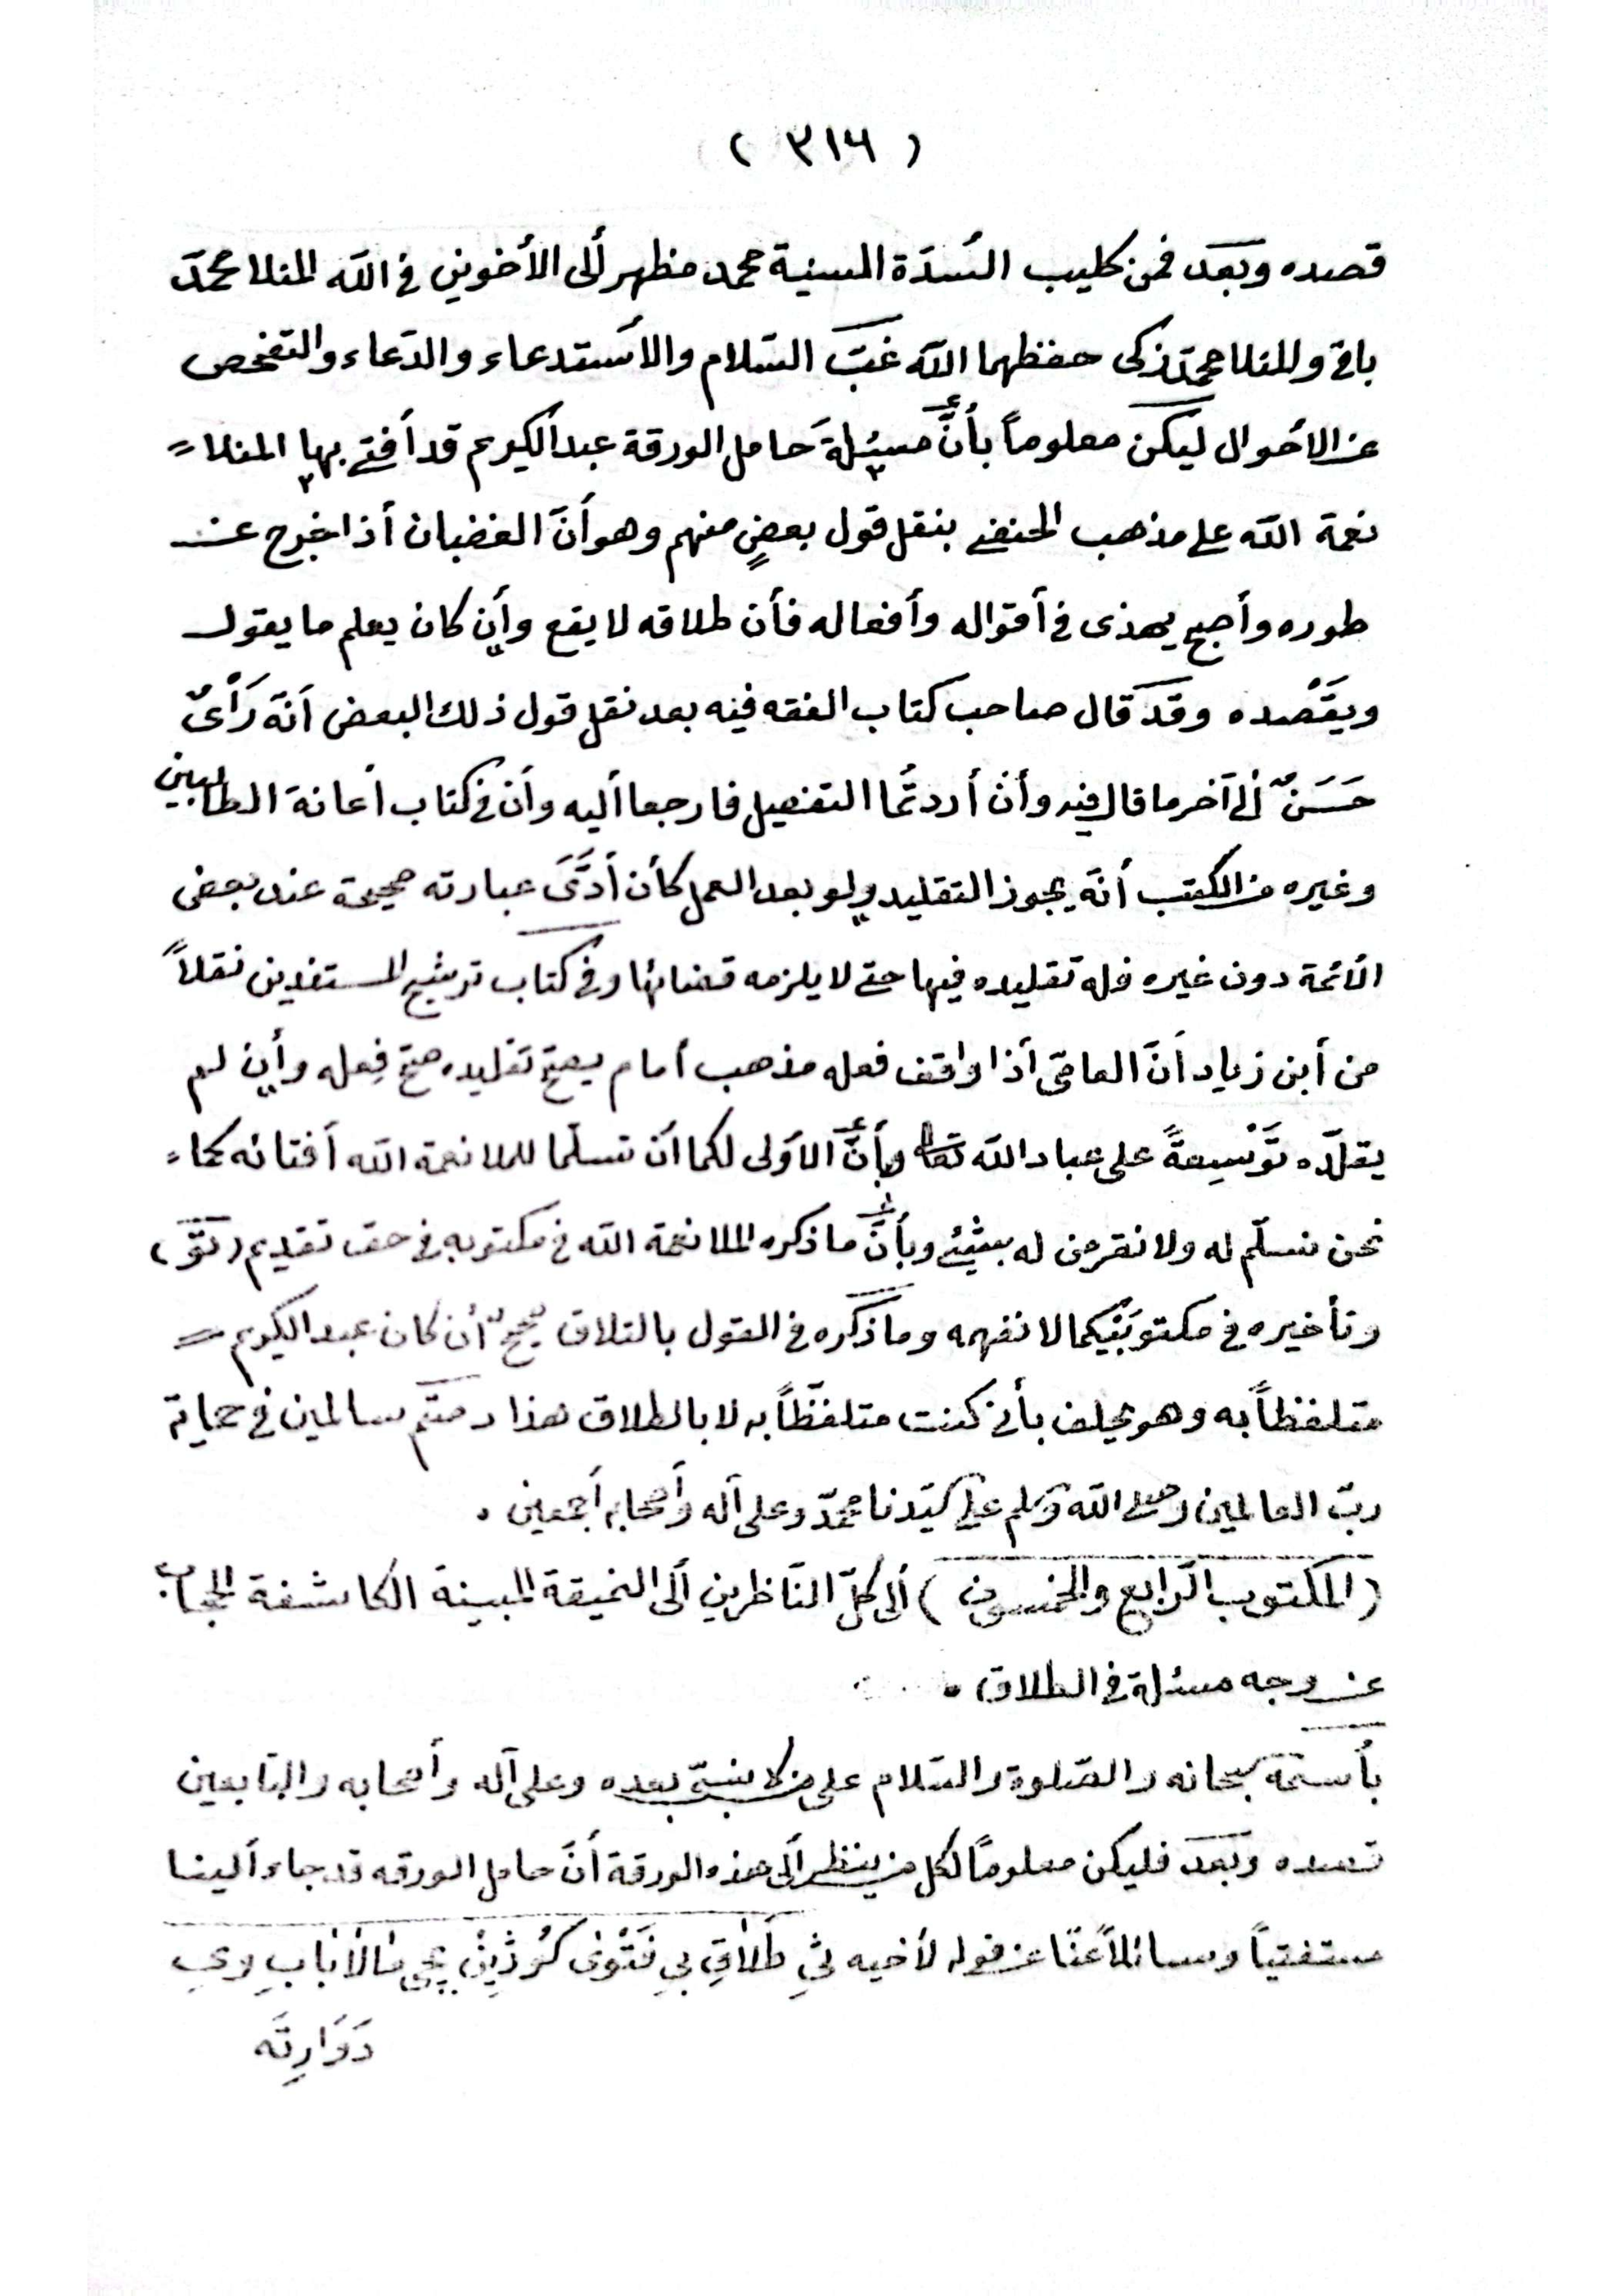 ( ٣١٦ )
قصده وبعد فمن كليب السّدّة السنية محمد مظهر ألى الأخوين في الله المنلا محمّد
باقي والمنلا محمّد زكى حفظهما اللّه غبّ السّلام والأستدعاء والدّعاء والتفحص
عن الأحوال ليكن معلوماً بأنَّ مسئلةَ حامل الورقة عبدالكريم قد أفتى بها المنلا
نعمة اللّه على مذهب الحنفى بنقل قول بعضٍ منهم وهو أنّ الغضبان أذا خرج عن
طوره وأصبح يهذى في أقواله وأفعاله فأن طلاقه لا يقع وأن كان يعلم ما يقول
ويقصده وقد قال صاحب كتاب الفقه فيه بعد نقل قول ذلك البعض أنّه رَأْىٌ
حَسَنٌ ألى آخر ما قال فيه وأن أردتُّما التفصيل فارجعا أليه وأن في كتاب أعانة الطالبين
وغيره من الكتب أنّه يجوز التقليد ولو بعد العمل كأن أدَّىَ عبارته صحيحة عند بعض
الأئمة دون غيره فله تقليده فيها حتى لا يلزمه قضائها وفي كتاب ترشيح المستفدين نقلاً
من أبن زياد أنّ العامّى أذا وافق فعله مذهب أمام يصحّ تقليده صحّ فِعله وأن لم
يقلّده تَوْسِعةً على عباد اللّه تعالى وبأنَّ الأولى لكما أن تسلّما للملا نعمة اللّه أفتائه كما
نحن نسلّم له ولا نقرض له بشيئ وبأنَّ ما ذكره الملا نعمة اللّه في مكتوبه في حق تقديم (تقّ)
وتأخيره في مكتوبَيْكما لا نفهمه وما ذكره في القول بالتلاق صحيحٌ أن كان عبدالكريم
متلفظاً به وهو يحلف بأنى كنت متلفّظاً به لا بالطلاق هذا دمتم سالمين في حماية
ربّ العالمين وصلى اللّه وسلم على سيّدنا محمّد وعلى آله وأصحابه أجمعين .
(المكتوب الرّابع والخمسون) ألى كلّ النّاظرين ألى النميقة المبينة الكاشفة الحجاب
عن وجه مسئلة في الطلاق .
بأسمه سبحانه والصّلوة والسّلام على من لا نبيّ بعده وعلى آله وأصحابه والتابعين
قصده وبعد فليكن معلوماً لكل من ينظر ألى هذه الورقة أنّ حامل الورقه قد جاء ألينا
مستفتياً وسائلاً عنّا عن قوله لأخيه طَلاقِ بي فَتْوىٰ
دَوَارِتَه